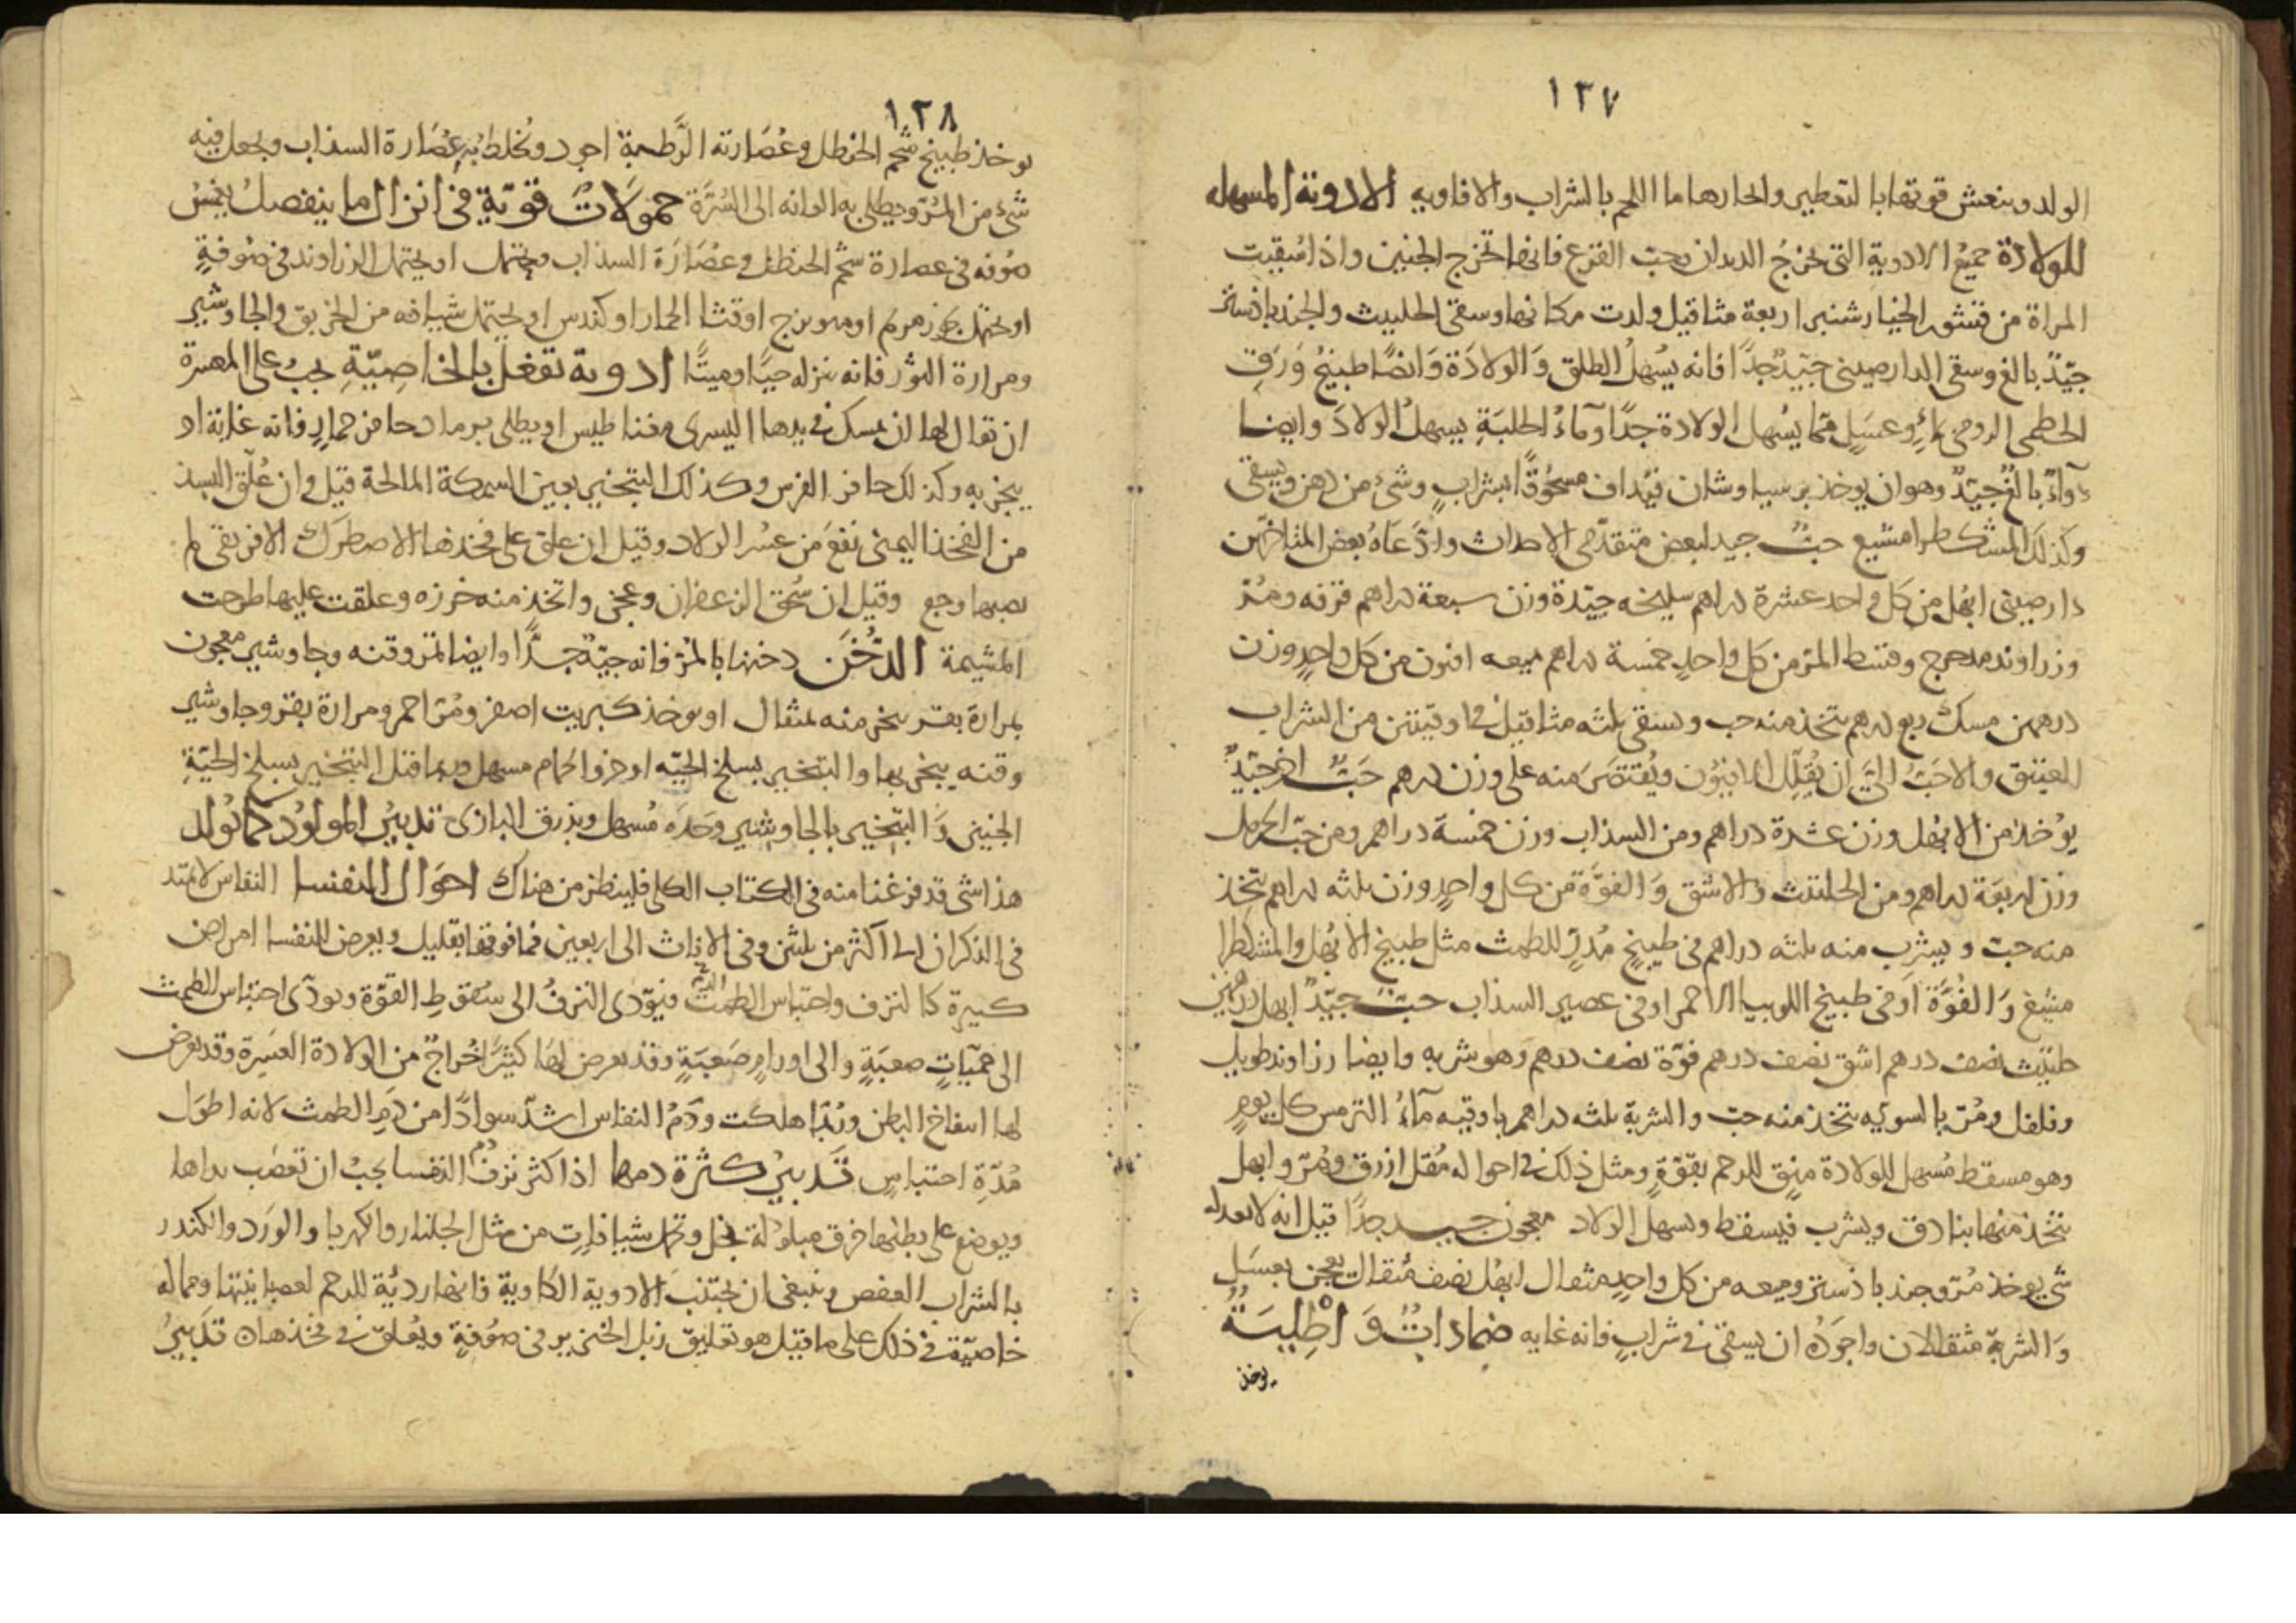 ١٣٧
الولد وينعش قوتها بالتعطير والحارها ما اللحم بالشراب والافاويه الادوية المسهله
للولادة جميع الادوية التى تخرج الديدان وحب القرع فانها تخرج الجنين واذا سقيت
المراة من قشور الخيار شنبر اربعة مثاقيل ولدت مكانها وسقى الحلتيث والجندباذستر
جيّدٌ بالغ وسقى الدارصينى جيّدٌ جدًا فانه يُسهلُ الطلق وَالولادَة وَايضًا طبيخُ وَرَقِ
الخطمى الرومى بماءٍ وعسَلٍ ممّا يُسهل الولادة جدًا وَمآءُ الحلبَةِ يسهل الولادَ وايضا
دوآءٌ بالغٌ جيّدٌ وهو ان يوخذ برسياوشان فيُداف مسحُوقًا بشرابٍ وشىء من دهن ويسقى
وكذلك المشكطرامشيع حبٌ جيد لبعض متقدّمى الاحداث وادَّعَاهُ بعض المتاخرين
دارصينى ابهل من كل واحد عشرة دراهم سليخه جيّدة وزن سبعة دراهم قرفه ومُرّ
وزراوند مدحرج وقسط المر من كل واحدٍ خمسة دراهم ميعه افيون من كل واحدٍ وزن
درهمين مسك ربع درهم يتخذ منه حب ويسقى ثلثه مثاقيل فى اوقيتين من الشراب
العتيق والاحَبّ الىَّ ان يُقلّل الافيُون ويُقتصَر منه على وزن درهم حَبٌ اخر جيّدٌ
يوُخذ من الابهُل وزن عشرة دراهم ومن السذاب وزن خمسة دراهم ومن حبّ الحرمل
وزن اربعَة دراهم ومن الحلتيث والاشق وَالفوّة من كل واحدٍ وزن ثلثه دراهم يتخذ
منه حبّ ويشرب منه ثلثه دراهم فى طبيخٍ مُدرٍّ للطمث مثل طبيخ الابهُل والمشكطرا
مشيع وَالفُوَّة اَو فى طبيخ اللوبيا الاحمر او فى عصير السذاب حبٌ جيّدٌ ابهل درهمين
حلتيث نصف درهم اشق نصف درهم فوّة نصف درهم وهو شربه وايضا زراوند طويل
وفلفل ومُرّ بالسويه يتخذ منه حبّ والشربة ثلثه دراهم باوقيه مآءُ الترمس كل يومٍ
وهو مسقط مُسهل للولادة منقٍ للرحم بقوّةٍ ومثل ذلك فى احواله مُقل ازرق ومُرّ وابهل
يتّخذ منها بنادق ويشرب فيسقط ويسهل الولاد معجون جيد جدًا قيل انه لا يعدله
شى يوخذ مُرّ وجندباذستر وميعه من كل واحدٍ مثقال ابهُل نصف مثقال يعجن بعسَلٍ
وَالشربة مثقالان واجوَدُه ان يسقى فى شرابٍ فانه غايه ضماداتٌ وَ اطْلِيَةٌ
يوخذ
١٣٨
يوخذ طبيخ شحم الحنظل وعُصَارته الرَّطبة اجود ويُخلط به عُصَارة السذاب ويجعل فيه
شىء من المُرّ ويطلى به العانه الى السُرَّة حمولَاتٌ قويّةٍ فى انزال ما ينفصلُ يغمسُ
صُوفه فى عصارة شحم الحنظل وعُصَارَة السذاب ويحتمل او يحتمل الزراوند فى صُوفةٍ
او يحتمل بخور مريم او ميويزج او قثا الحمار او كندس او يحتمل شيافه من الخربق والجاوشير
ومرارة الثور فانه ينزله حيًا وميتًا ادوية تفعل بالخاصِيّةِ يجبُ على المعسرة
ان يقال لها ان تمسك فى يدها اليسرى مغناطيس او يطلى برماد حافر حمارٍ فانه غاية او
يبخر به وكذلك حافر الفرس وكذلك التبخير بعين السمكة المالحة قيل وان عُلّق البسذ
من الفخذ اليمنى نفعَ من عسُر الولاد وقيل ان علق على فخذها الاصطرك الافريقى لم
يصبها وجع وقيل ان سُحق الزعفران وعجن واتخذ منه خرزه وعلقت عليها طرحت
المشيمة الدُّخَن دخنها بالمُرّ فانه جيّدٌ جدًّا وايضا مرّ وقنه وجاوشير معجون
بمرارة بقر يبخر منه بمثقال او يوخذ كبريت اصفر ومُرّ احمر ومرارة بقر وجاوشير
وقنه يبخر بها والتبخير بسلخ الحيّه او خرو الحمام مسهل وربما قتل التبخير بسلخ الحيّةِ
الجنين وَالتبخير بالجاوشير وَحدَه مُسهل وبذرق البازى تدبيرُ المولوُد كما يُولد
هذا شى قد فرغنا منه فى الكتاب الكلى فلينظر من هناك احوَال النفسا النفاس لا يمتد
فى الذكران الى اكثر من ثلثين وفى الاناث الى اربعين فما فوقها بقليل ويعرض للنفسا امراض
كثيرة كالنزف واحتباس الطمث الدم فيؤدى النزفُ الى سُقوطِ القوّة ويودّى احتباس الطمث
الى حميّاتٍ صعبَةٍ والى اورامٍ صَعبَةٍ وقد يعرض لها كثيرًا خُراجٌ من الولادة العسِرة وقد يعرض
لها انتفاخ البطن ورُبّما هلكت ودَمُ النفاس اشدّ سوادًا من دَمِ الطمث لانه اطوَل
مُدّةِ احتباسٍ تَدبيرُ كثرة دمها اذا كثر نزفُ دم النفسا يجبُ ان تعصَب يداها
ويوضع على بطنها خرق مبلولة بخل وتحمل شيافات من مثل الجلنار والكهربا والورَد والكندر
بالشراب العفص وينبغى ان يجتنبَ الادوية الكاوية فانها رديّة للرحم لعصبانيتها ومما له
خاصيّة فى ذلك على ما قيل هو تعليق زبل الخنزير فى صُوفةٍ ويُعلق فى فخذها تَدبيرُ